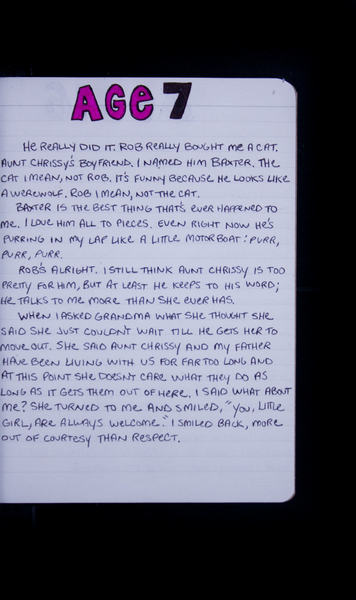 AGE 7
HE REALLY DID IT. ROB REALLY BOUGHT ME A CAT.
AUNT CHRISSY'S BOYFRIEND. I NAMED HIM BAXTER. THE
CAT I MEAN, NOT ROB. IT'S FUNNY BECAUSE HE LOOKS LIKE
A WEREWOLF. ROB I MEAN, NOT THE CAT.
BAXTER IS THE BEST THING THAT'S EVER HAPPENED TO
ME. I LOVE HIM ALL TO PIECES. EVEN RIGHT NOW HE'S
PURRING IN MY LAP LIKE A LITTLE MOTORBOAT: PURR,
PURR, PURR.
ROB'S ALRIGHT. I STILL THINK AUNT CHRISSY IS TOO
PRETTY FOR HIM, BUT AT LEAST HE KEEPS TO HIS WORD;
HE TALKS TO ME MORE THAN SHE EVER HAS.
WHEN I ASKED GRANDMA WHAT SHE THOUGHT SHE
SAID SHE JUST COULDN'T WAIT TILL HE GETS HER TO
MOVE OUT. SHE SAID AUNT CHRISSY AND MY FATHER
HAVE BEEN LIVING WITH US FOR FAR TOO LONG AND
AT THIS POINT SHE DOESN'T CARE WHAT THEY DO AS
LONG AS IT GETS THEM OUT OF HERE. I SAID WHAT ABOUT
ME? SHE TURNED TO ME AND SMILED, "YOU, LITTLE
GIRL, ARE ALWAYS WELCOME." I SMILED BACK, MORE
OUT OF COURTESY THAN RESPECT.